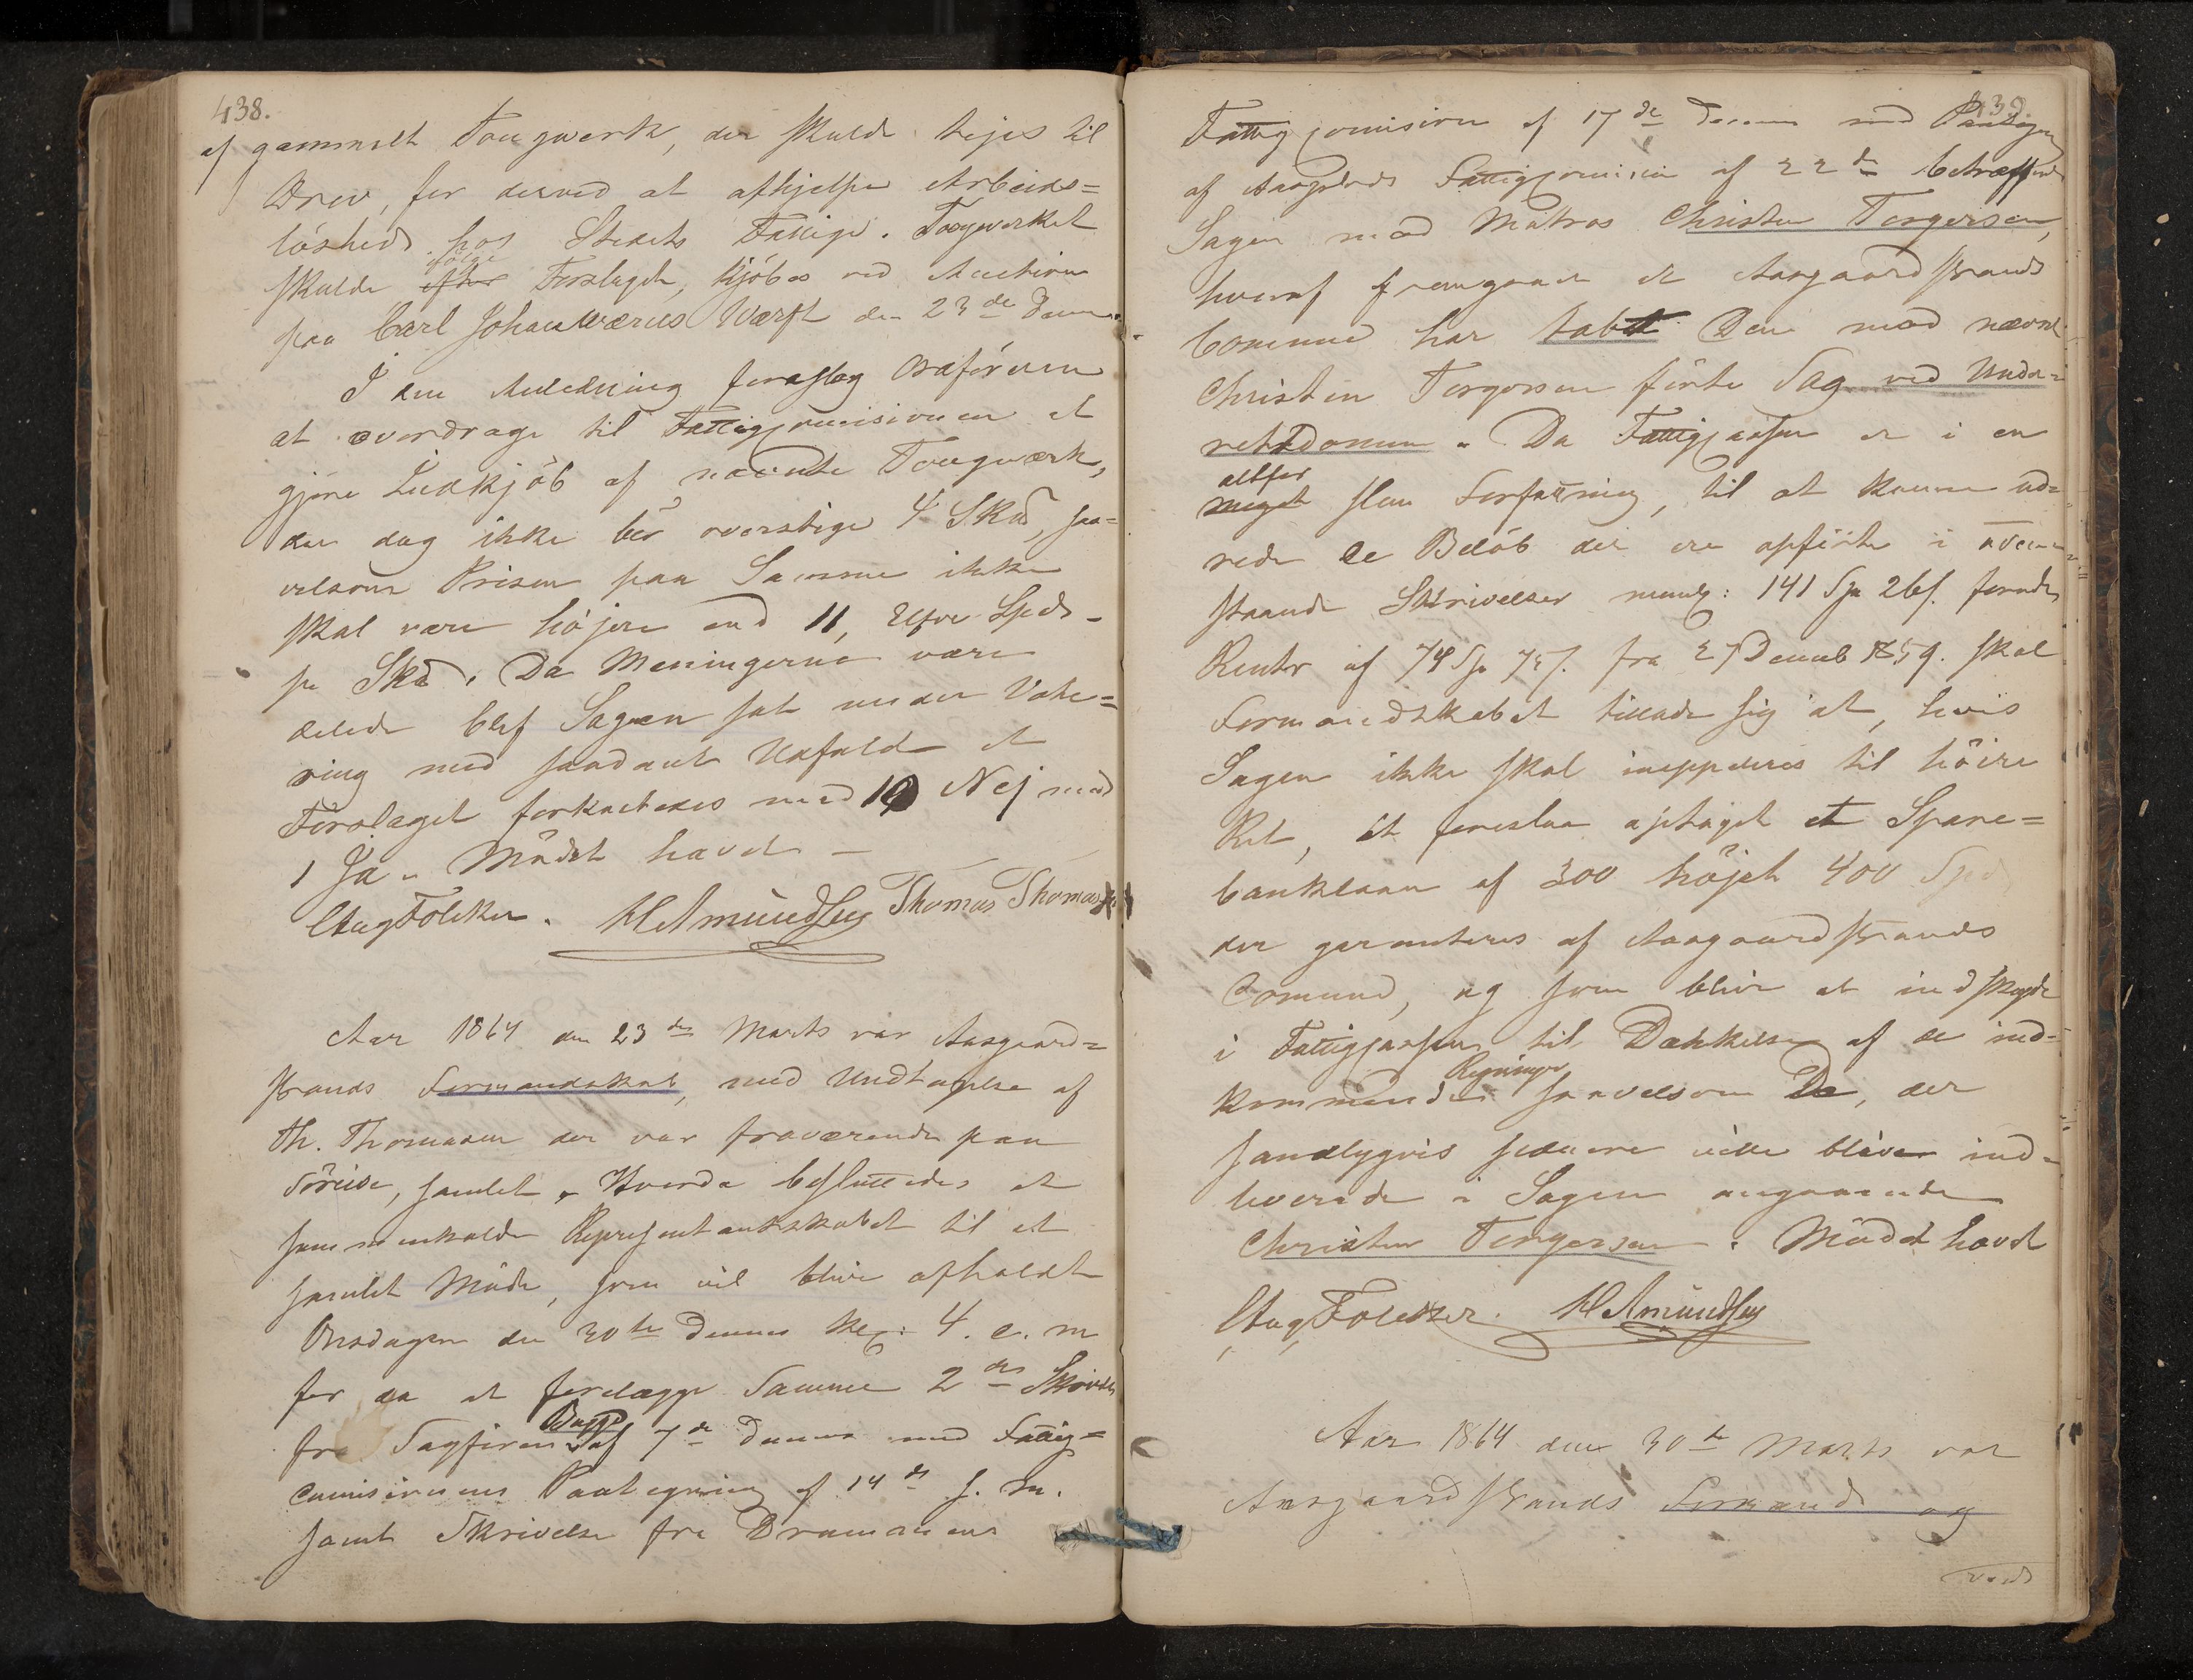 438.
af gammelt Tougverk, der skulde tejes til
Drev, for derved at afhjelpe Arbeids=
løshed hos Stedets Fattige. Tougverket
ifølge
skulde efter Forslaget, kjøbes ved Auctionen
paa Carl Johansværns Værft den 23de Dennes
I den Anledning foreslog Ordføreren
at overdrage til Fattigcomisionen at
gjøre Indkjøb af nævnte Tougværk,
der dog ikke bør overstige 4 Sk℔, saa=
velsom Prisen paa Samme ikke
skal være højere end 11, Elleve Spd
pr Sk℔. Da Meningerne vare
delede blef Sagen sat under Vote=
ring med saadant Udfald at
Forslaget forkastedes med 10 Nej mod
1 Ja. Mødet hævet —
Aug Fölcker. H Amundsen Thomas Thomasen
Aar 1864 den 23de Marts var Aasgaard=
strands Formandskab, med Undtagelse af
Th. Thomasen der var fraværende paa
Søreise, samlet. Hvorda besluttedes at
sammenkalde Repræsentantskabet til et
samlet Møde, som vil blive afholdt
Onsdagen den 30te Dennes Kl: 4. e. m
for da at forelægge Samme 2de Skrivelser
Bugge
fra Sagfører af 7de Dennes med Fattig=
comisionens Paategning af 14de s. m.
samt Skrivelse fra Drammens
439.
Fattigcomision af 17de Dennes med Paategning
af Aasgstrds Fattigcomision af 22de betræffende
Sagen mod Matros Christen Torgersen,
hvoraf fremgaar at Aasgaardstrands
Comune har tabt Den mod nævnte
Christen Torgersen førte Sag ved Under=
retsdomen. Da Fattigcassen er i en
altfor
meget slau Forfatning, til at kunne ud=
rede de Beløb der ere opførte i oven=
staaende Skrivelser nemlig: 141 Spd 26 s. foruden
Renter af 74 Spd 75 s. fra 27 Decemb 1859. skal
Formandskabet tillade sig at, hvis
Sagen ikke skal inappeleres til høiere
Ret, at foreslaa optaget et Spare=
banklaan af 300 højst 400 Spd
der garanteres af Aasgaardstrands
Comune, og som bliver at indskyde
i Fattigcassen til Dækkelse af de ind=
Regninger
kommende saavelsom De, der
sandsynligvis sednere ville blive ind=
leverede i Sagen angaaende
Christen Torgersen. Mødet hævet
Aug Fölcker. H Amundsen
Aar 1864 den 30te Marts var
Aasgaardstrands Formands og